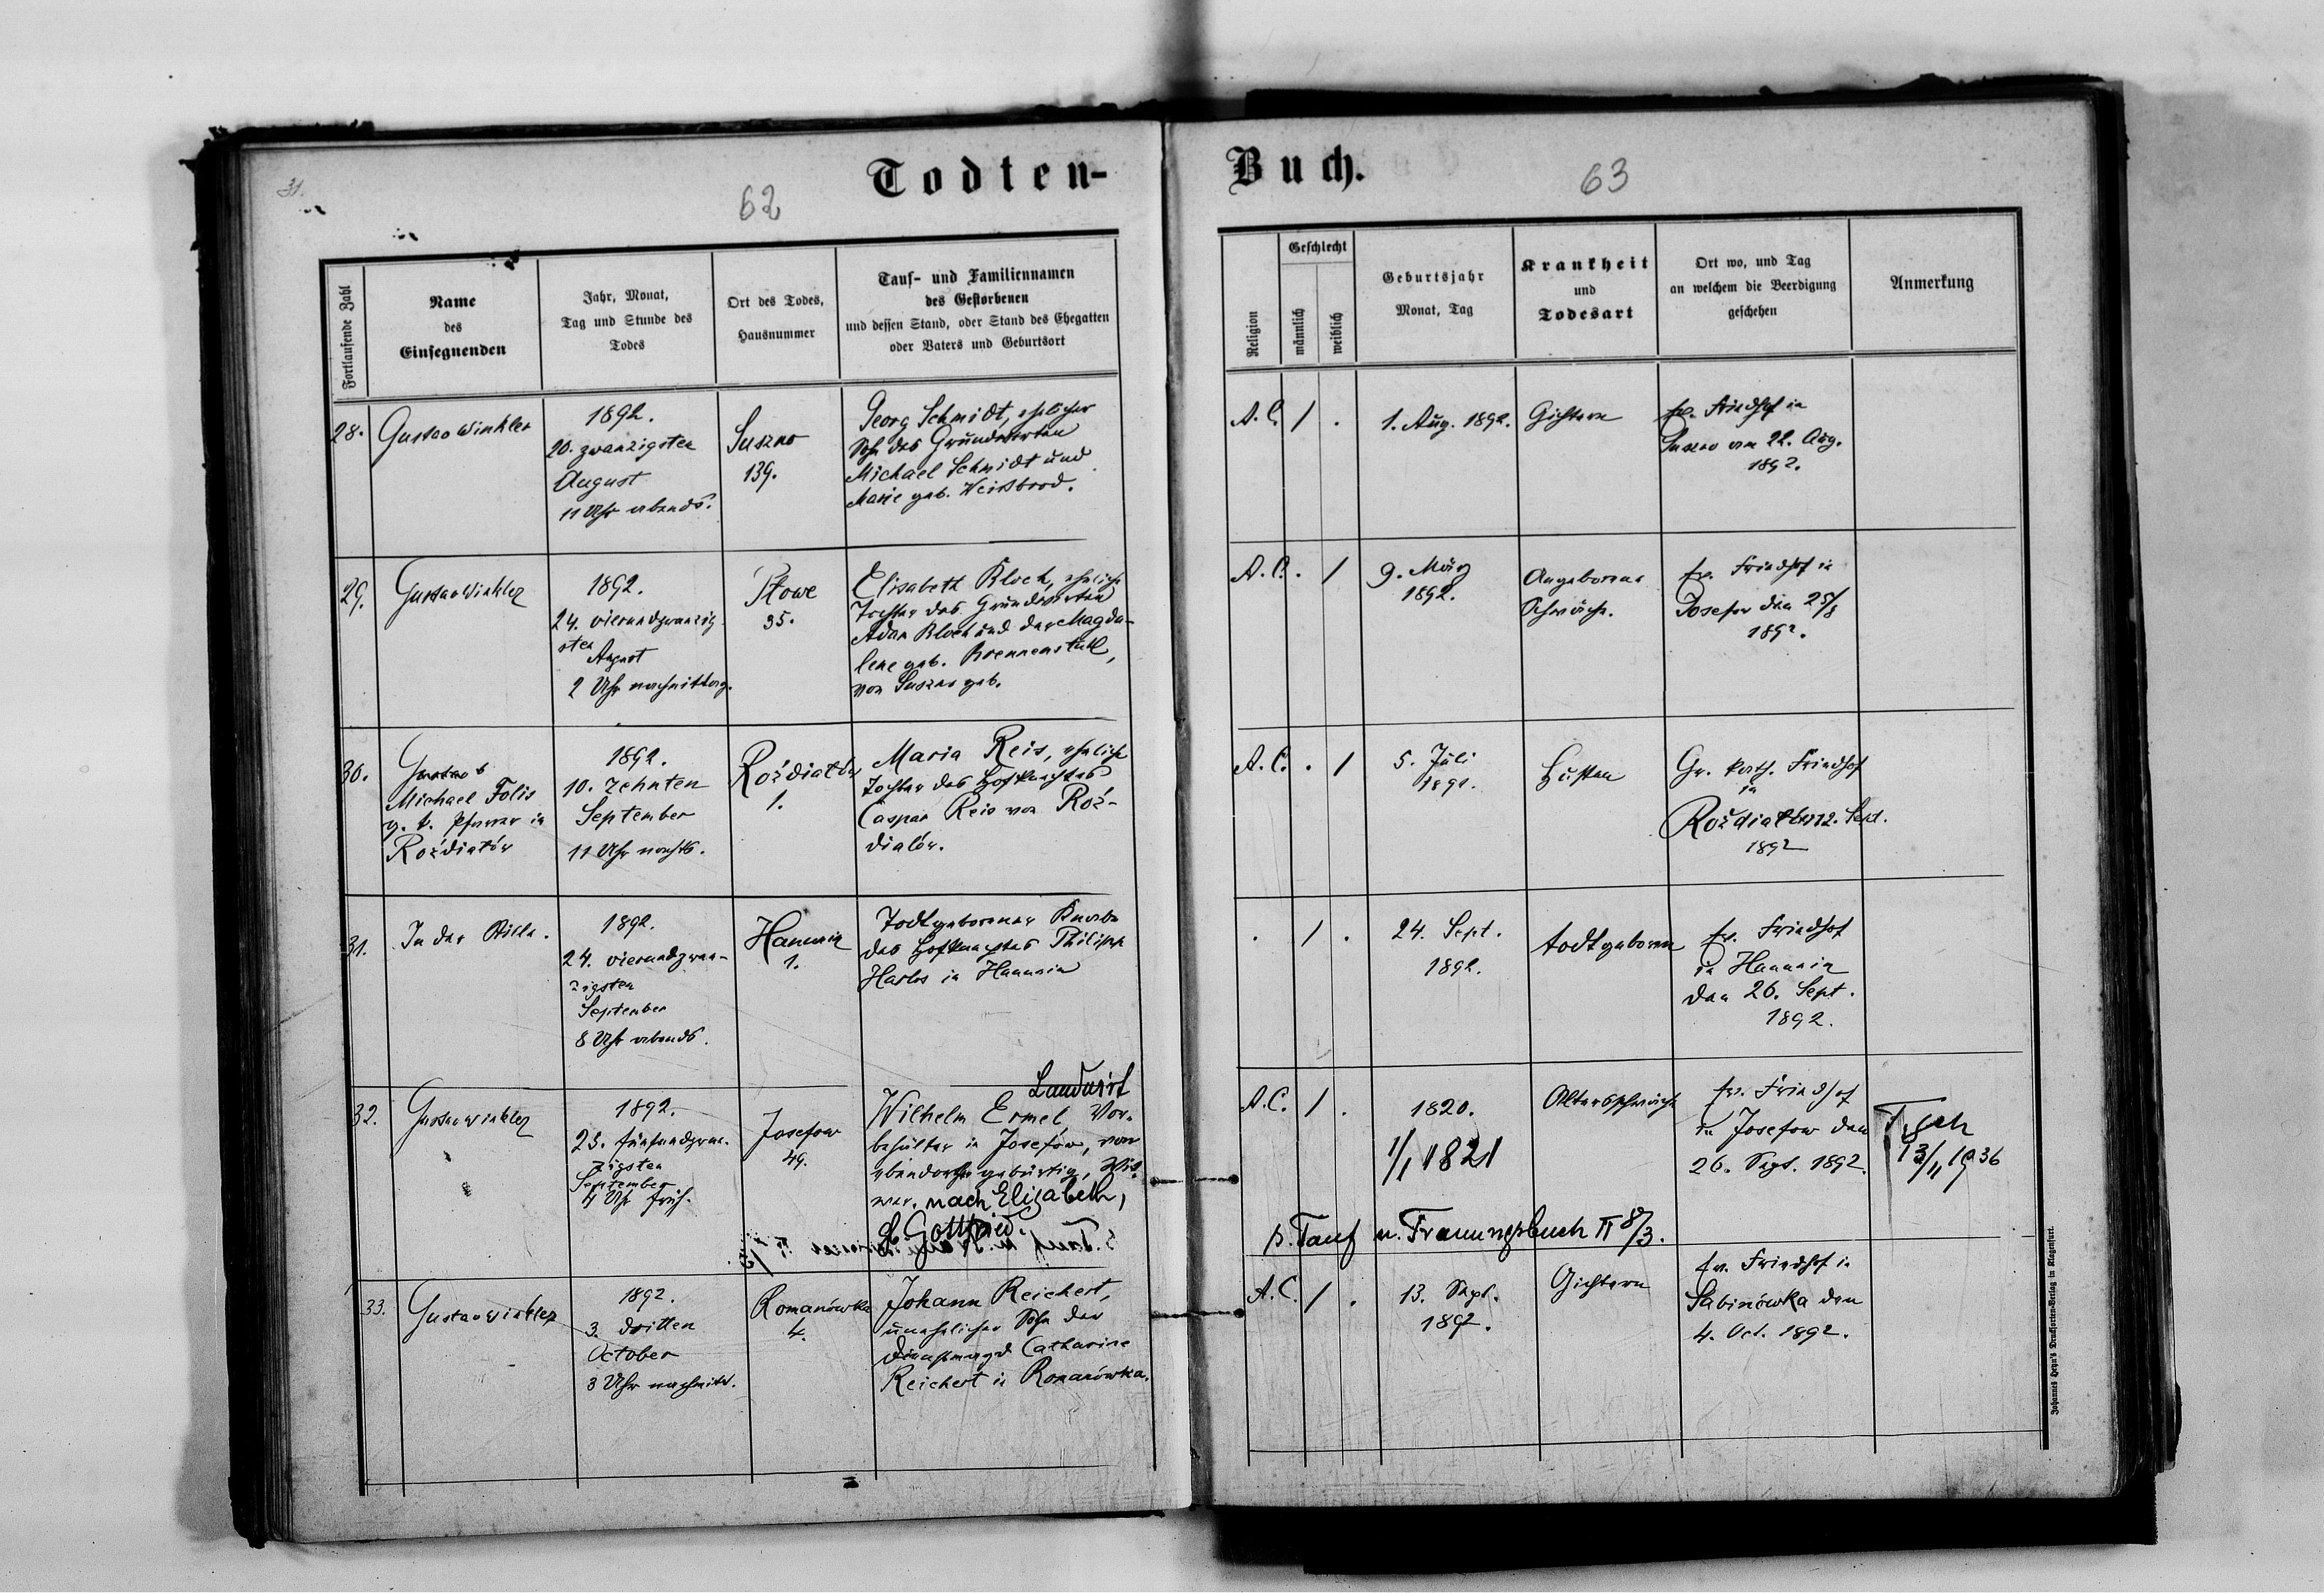 31.
62
Todten-
Fortlaufende Zahl
Name
des
Einsegnenden
Jahr, Monat,
Tag und Stunde des
Todes
Ort des Todes,
Hausnummer
Tauf- und Familiennamen
des Gestorbenen
und dessen Stand, oder Stand des Ehegatten
oder Vaters und Geburtsort
28.
Gustav Winkler
1892.
20. zwanzigsten
August
11 Uhr abends.
Suszno
139.
Georg Schmidt, ehelicher
Sohn des Grundwirten
Michael Schmidt und
Marie geb. Weißbrod.
29.
Gustav Winkler
1892.
24. vierundzwanzig
sten
August
2 Uhr nachmittag.
Stowe
35.
Elisabeth Bloch, eheliche
Tochter des Grundwirten
Adam Bloch und der Magda-
lene geb. Brennenstuhl,
von Suszno geb.
30.
Michael Folis
g. k. Pfarrer in
Roździatów
1892.
10. zehnten
September
11 Uhr nachts.
Roździatów
1.
Maria Reis, eheliche
Tochter des Hofknechtes
Caspar Reis von Roź-
diatów.
31.
In der Stille.
1892.
24. vierundzwan-
zigsten
September
8 Uhr abends.
Hanunin
1.
Todtgeborener Knabe
des Hofknechtes Philipp
Harlos in Hanunin
32.
Gustav Winkler
1892.
25. fünfundzwan-
zigsten
September
4 Uhr früh.
Josefow
49.
Landwirt
Wilhelm Ermel Vor-
behälter in Josefów, von
ebendorther gebürtig, Wit-
wer. nach Elisabeth,
g. Gottfried.
33.
Gustav Winkler
1892.
3. dritten
October
3 Uhr nachmitt.
Romanówka
4.
Johann Reichert,
unehelicher Sohn der
Dienstmagd Catharine
Reichert in Romanówka.
Buch.
63
Religion
Geschlecht
männlich
weiblich
Geburtsjahr
Monat, Tag
Krankheit
und
Todesart
Ort wo, und Tag
an welchem die Beerdigung
geschehen
Anmerkung
A. C. / .
1. Aug. 1892.
Gichtern
ev. Friedhof in
Suszno am 22. Aug.
1892.
A. C. . /
9. März
1892.
Angeborene
Schwäche.
ev. Friedhof in
Josefow den 25/8
1892.
A. C. . /
5. Juli
Husten
Gr. kath. Friedhof
in
Roździatów 12. Sept.
1892
. / .
24. Sept.
1892.
todtgeboren
ev. Friedhof
in Hanunin
den 26. Sept.
1892.
A. C. / .
1820.
1/1 1821
Altersschwäche
ev. Friedhof
in Josefow den
26. Sept. 1892.
13/11 1936
s. Tauf u. Trauungsbuch II 8/3.
A. C. / .
13. Sept.
1892.
Gichtern
ev. Friedhof in
Sabinówka den
4. Oct. 1892.
Johannes Heyn's Drucksorten-Verlag in Klagenfurt.